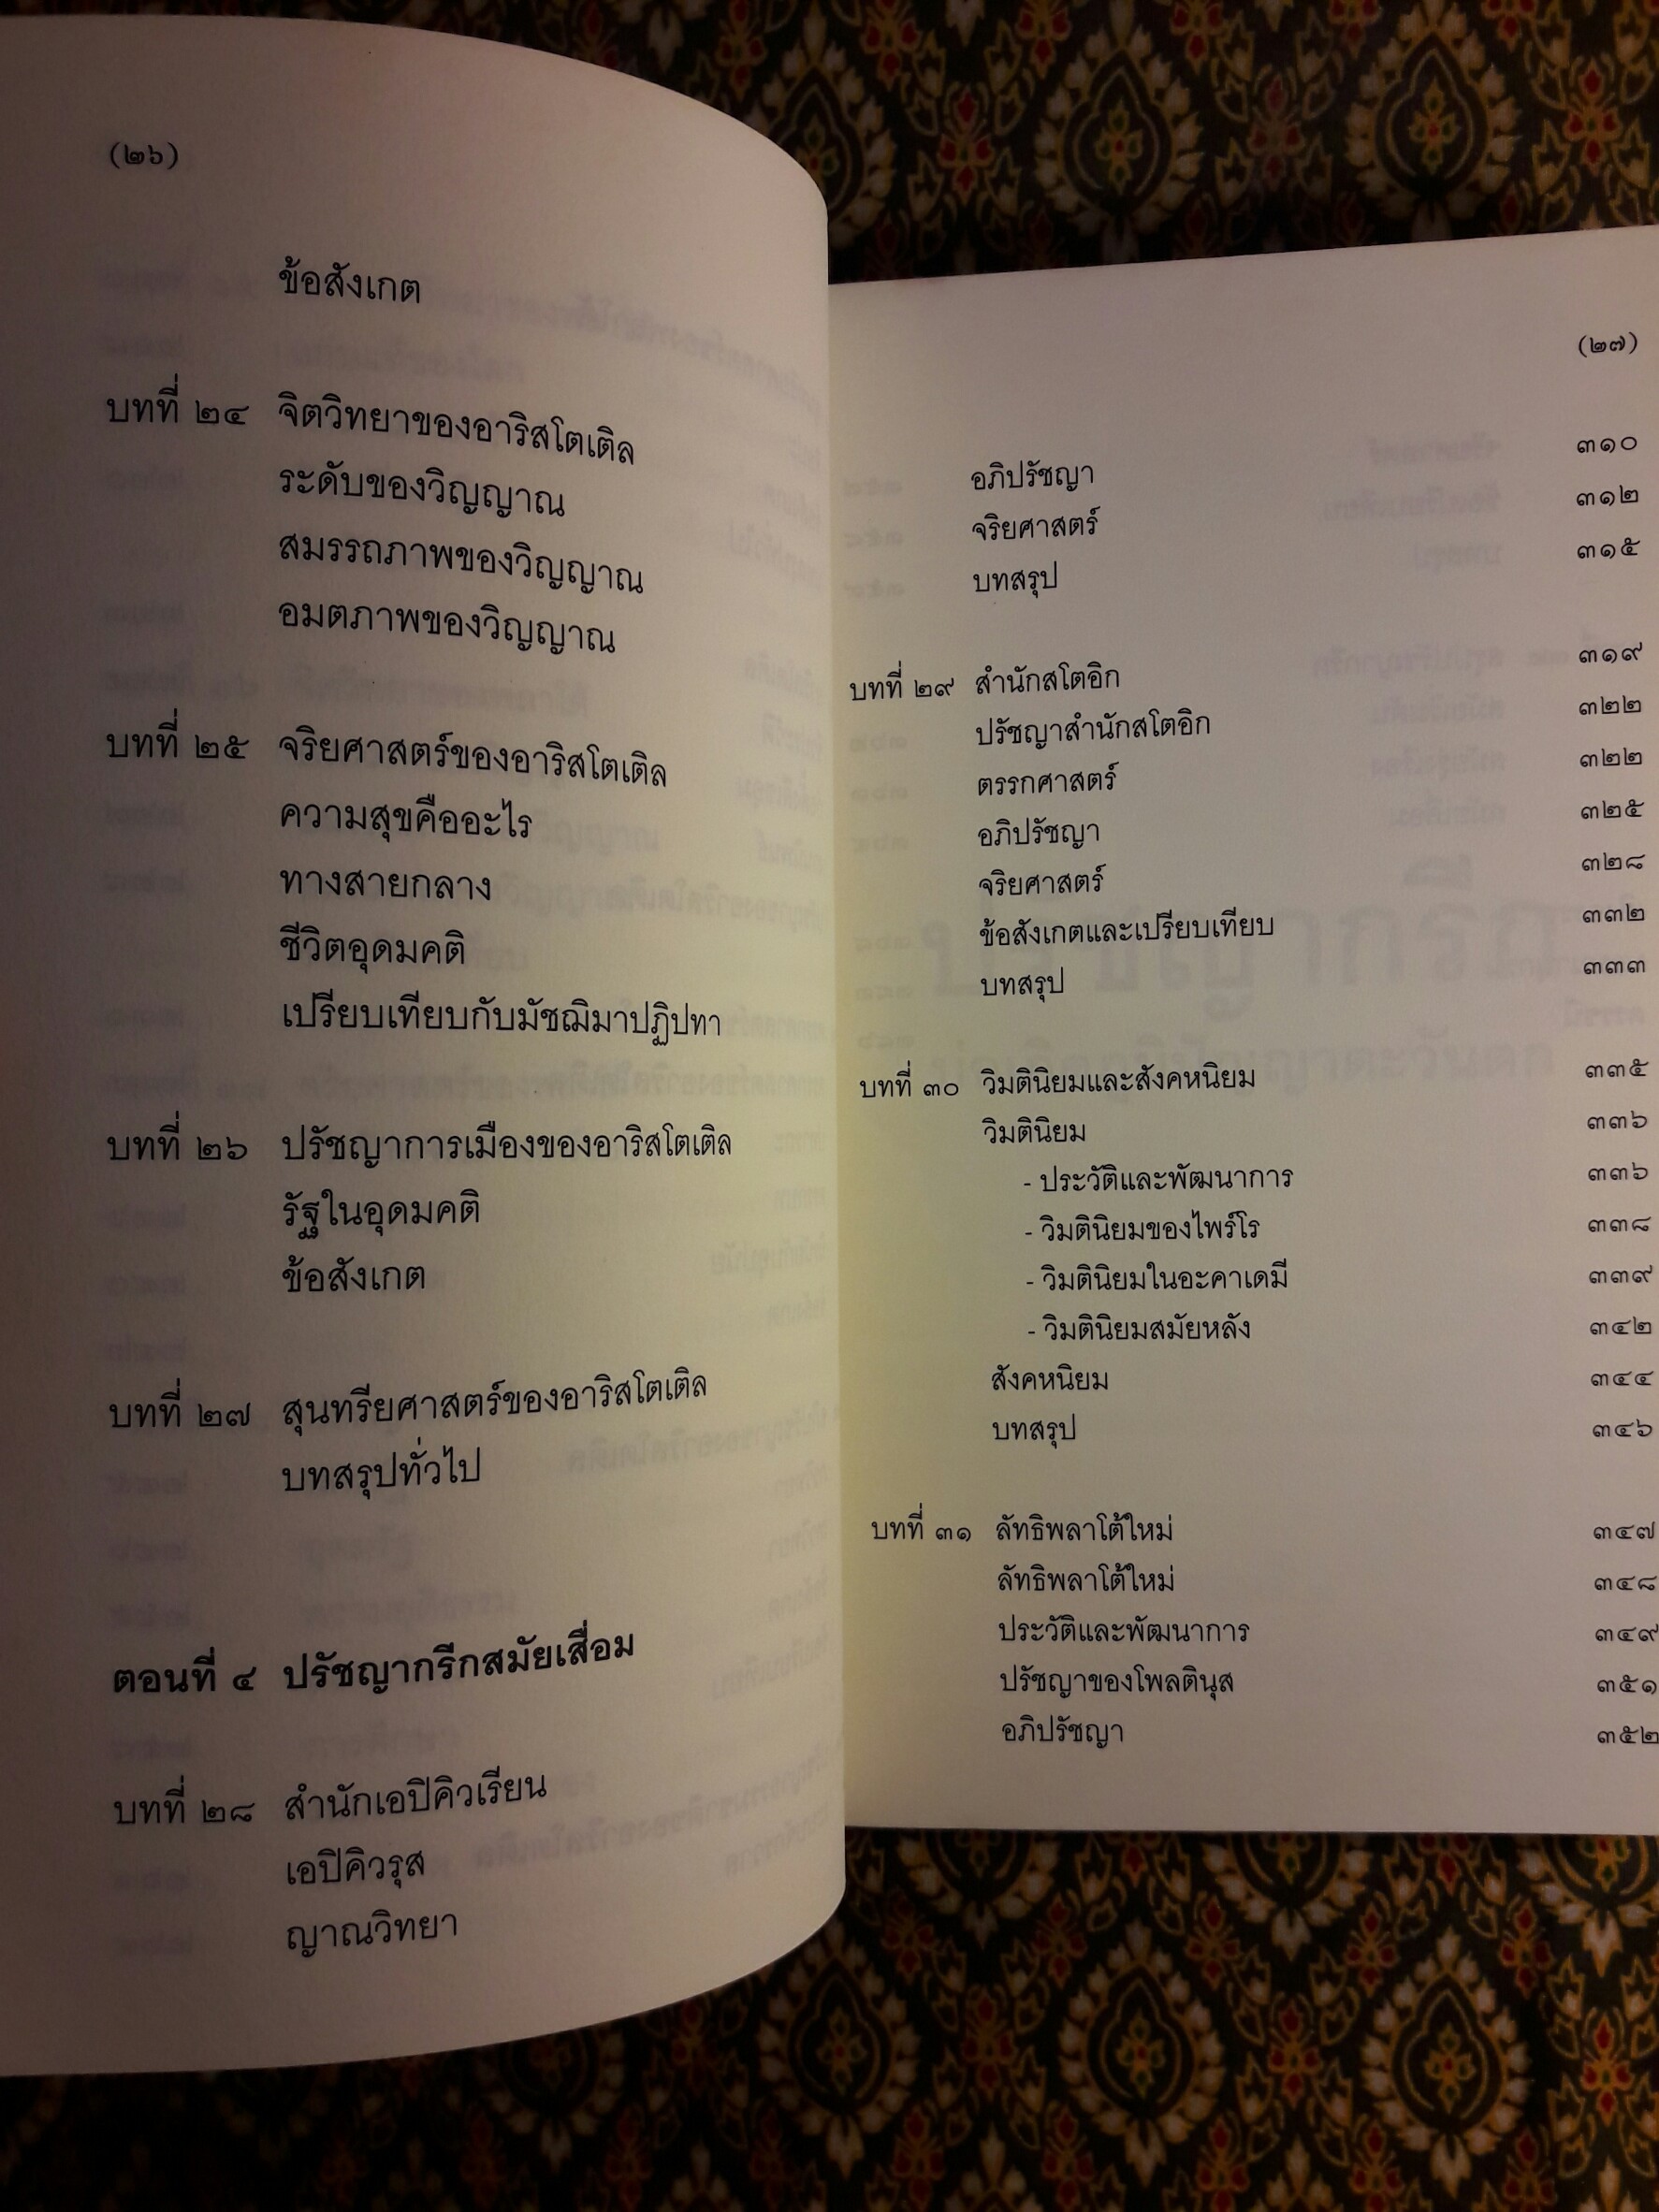 (๒๖)
ข้อสังเกต
บทที่ ๒๔ จิตวิทยาของอาริสโตเติล
ระดับของวิญญาณ
สมรรถภาพของวิญญาณ
อมตภาพของวิญญาณ
บทที่ ๒๕ จริยศาสตร์ของอาริสโตเติล
ความสุขคืออะไร
ทางสายกลาง
ชีวิตอุดมคติ
เปรียบเทียบกับมัชฌิมาปฏิปทา
บทที่ ๒๖ ปรัชญาการเมืองของอาริสโตเติล
รัฐในอุดมคติ
ข้อสังเกต
บทที่ ๒๗ สุนทรียศาสตร์ของอาริสโตเติล
บทสรุปทั่วไป
ตอนที่ ๔ ปรัชญากรีกสมัยเสื่อม
บทที่ ๒๘ สำนักเอปิคิวเรียน
เอปิคิวรุส
ญาณวิทยา
(๒๗)
อภิปรัชญา ๓๑๐
จริยศาสตร์ ๓๑๒
บทสรุป ๓๑๕
บทที่ ๒๙ สำนักสโตอิก ๓๑๙
ปรัชญาสำนักสโตอิก ๓๒๒
ตรรกศาสตร์ ๓๒๒
อภิปรัชญา ๓๒๕
จริยศาสตร์ ๓๒๘
ข้อสังเกตและเปรียบเทียบ ๓๓๒
บทสรุป ๓๓๓
บทที่ ๓๐ วิมตินิยมและสังคหนิยม ๓๓๕
วิมตินิยม ๓๓๖
- ประวัติและพัฒนาการ ๓๓๖
- วิมตินิยมของไพร์โร ๓๓๘
- วิมตินิยมในอะคาเดมี ๓๓๙
- วิมตินิยมสมัยหลัง ๓๔๒
สังคหนิยม ๓๔๔
บทสรุป ๓๔๖
บทที่ ๓๑ ลัทธิพลาโต้ใหม่ ๓๔๗
ลัทธิพลาโต้ใหม่ ๓๔๘
ประวัติและพัฒนาการ ๓๔๙
ปรัชญาของโพลตินุส ๓๕๑
อภิปรัชญา ๓๕๒